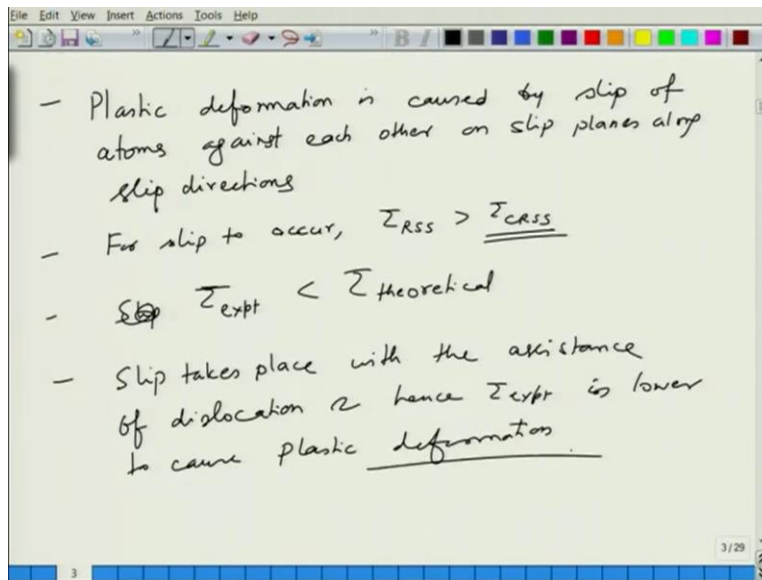 File Edit View Insert Actions Tools Help
B I
- Plastic deformation is caused by slip of
atoms against each other on slip planes along
slip directions
- For slip to occur, τRSS > τCRSS
- τexpt < τtheoretical
- Slip takes place with the assistance
of dislocation & hence τexpt is lower
to cause plastic deformation.
3/29
3